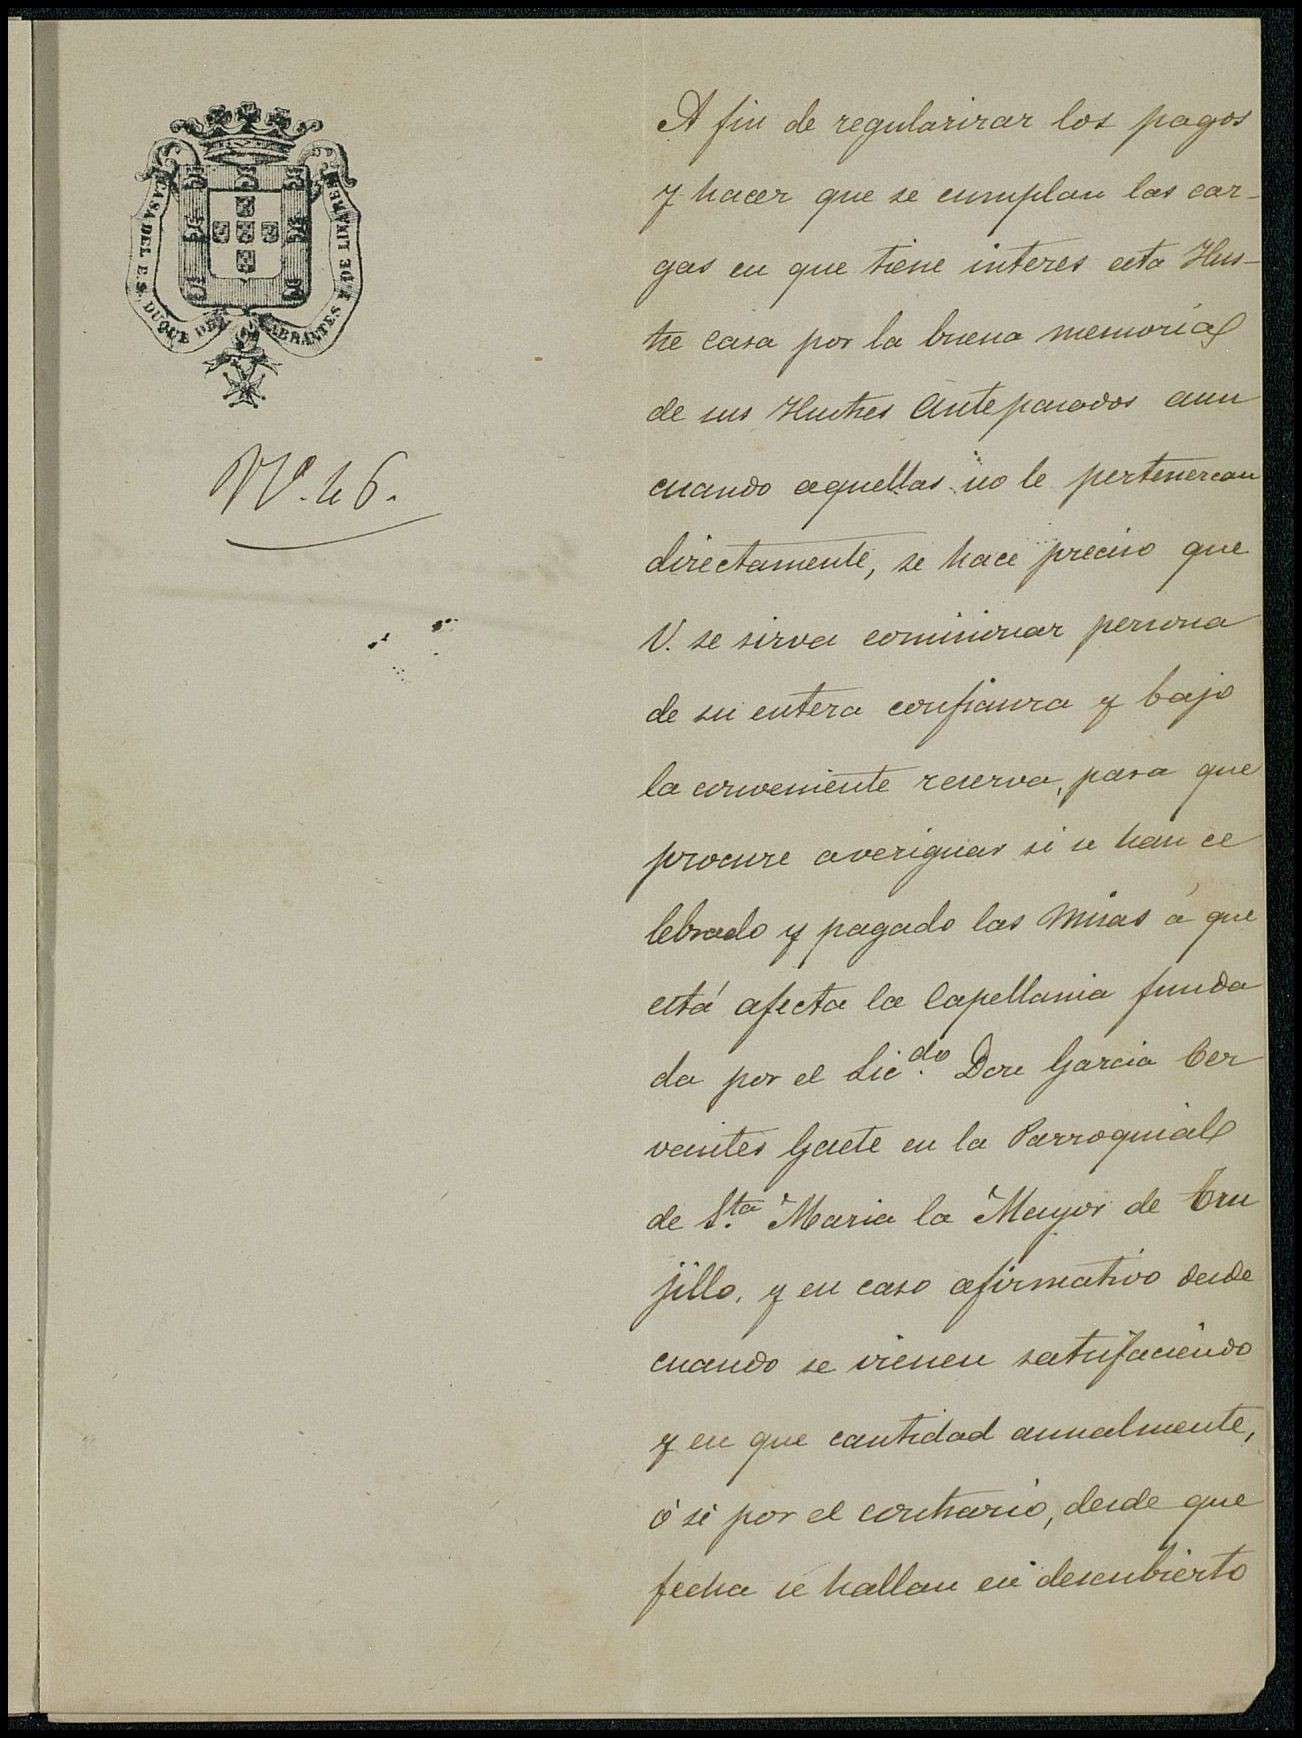 CASA DEL E. S. DUQUE DE ABRANTES Y DE LINARES
Nº. 46.
A fin de regularizar los pagos
y hacer que se cumplan las car-
gas en que tiene interes esta Ilus-
tre Casa por la buena memoria
de sus Ilustres Antepasados aun
cuando aquellas no le pertenezcan
directamente, se hace preciso que
V. se sirva comisionar persona
de su entera confianza y bajo
la conveniente reserva, para que
procure averiguar si se han ce
lebrado y pagado las Misas á que
está afecta la Capellania funda
da por el Lic.do Don Garcia Cer
vantes Gaete en la Parroquial
de S.ta Maria la Mayor de Tru
jillo, y en caso afirmativo desde
cuando se vienen satisfaciendo
y en que cantidad anualmente,
ó si por el contrario, desde que
fecha se hallan en descubierto